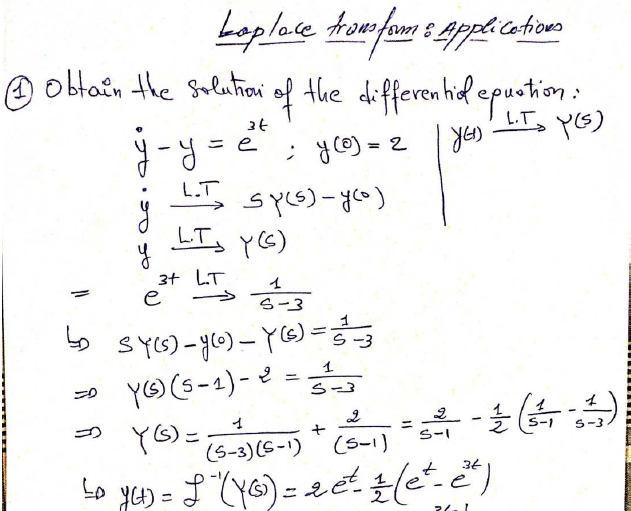 Laplace transform : Applications
① Obtain the solution of the differential equation :
ẏ - y = e^{3t} ; y(0) = 2 | y(t) —L.T→ Y(s)
ẏ —L.T→ sY(s) - y(0)
y —L.T→ Y(s)
= e^{3t} —L.T→ 1/(s-3)
↳ sY(s) - y(0) - Y(s) = 1/(s-3)
⇒ Y(s)(s-1) - 2 = 1/(s-3)
⇒ Y(s) = 1/((s-3)(s-1)) + 2/(s-1) = 2/(s-1) - 1/2 (1/(s-1) - 1/(s-3))
↳ y(t) = ℒ^{-1}(Y(s)) = 2e^t - 1/2 (e^t - e^{3t})